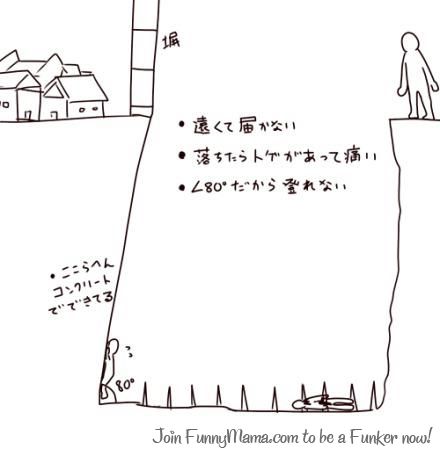 塀
• 遠くて届かない
• 落ちたらトゲがあって痛い
• ∠80°だから登れない
• ここらへん
コンクリート
でできてる
80°
Join FunnyMama.com to be a Funker now!